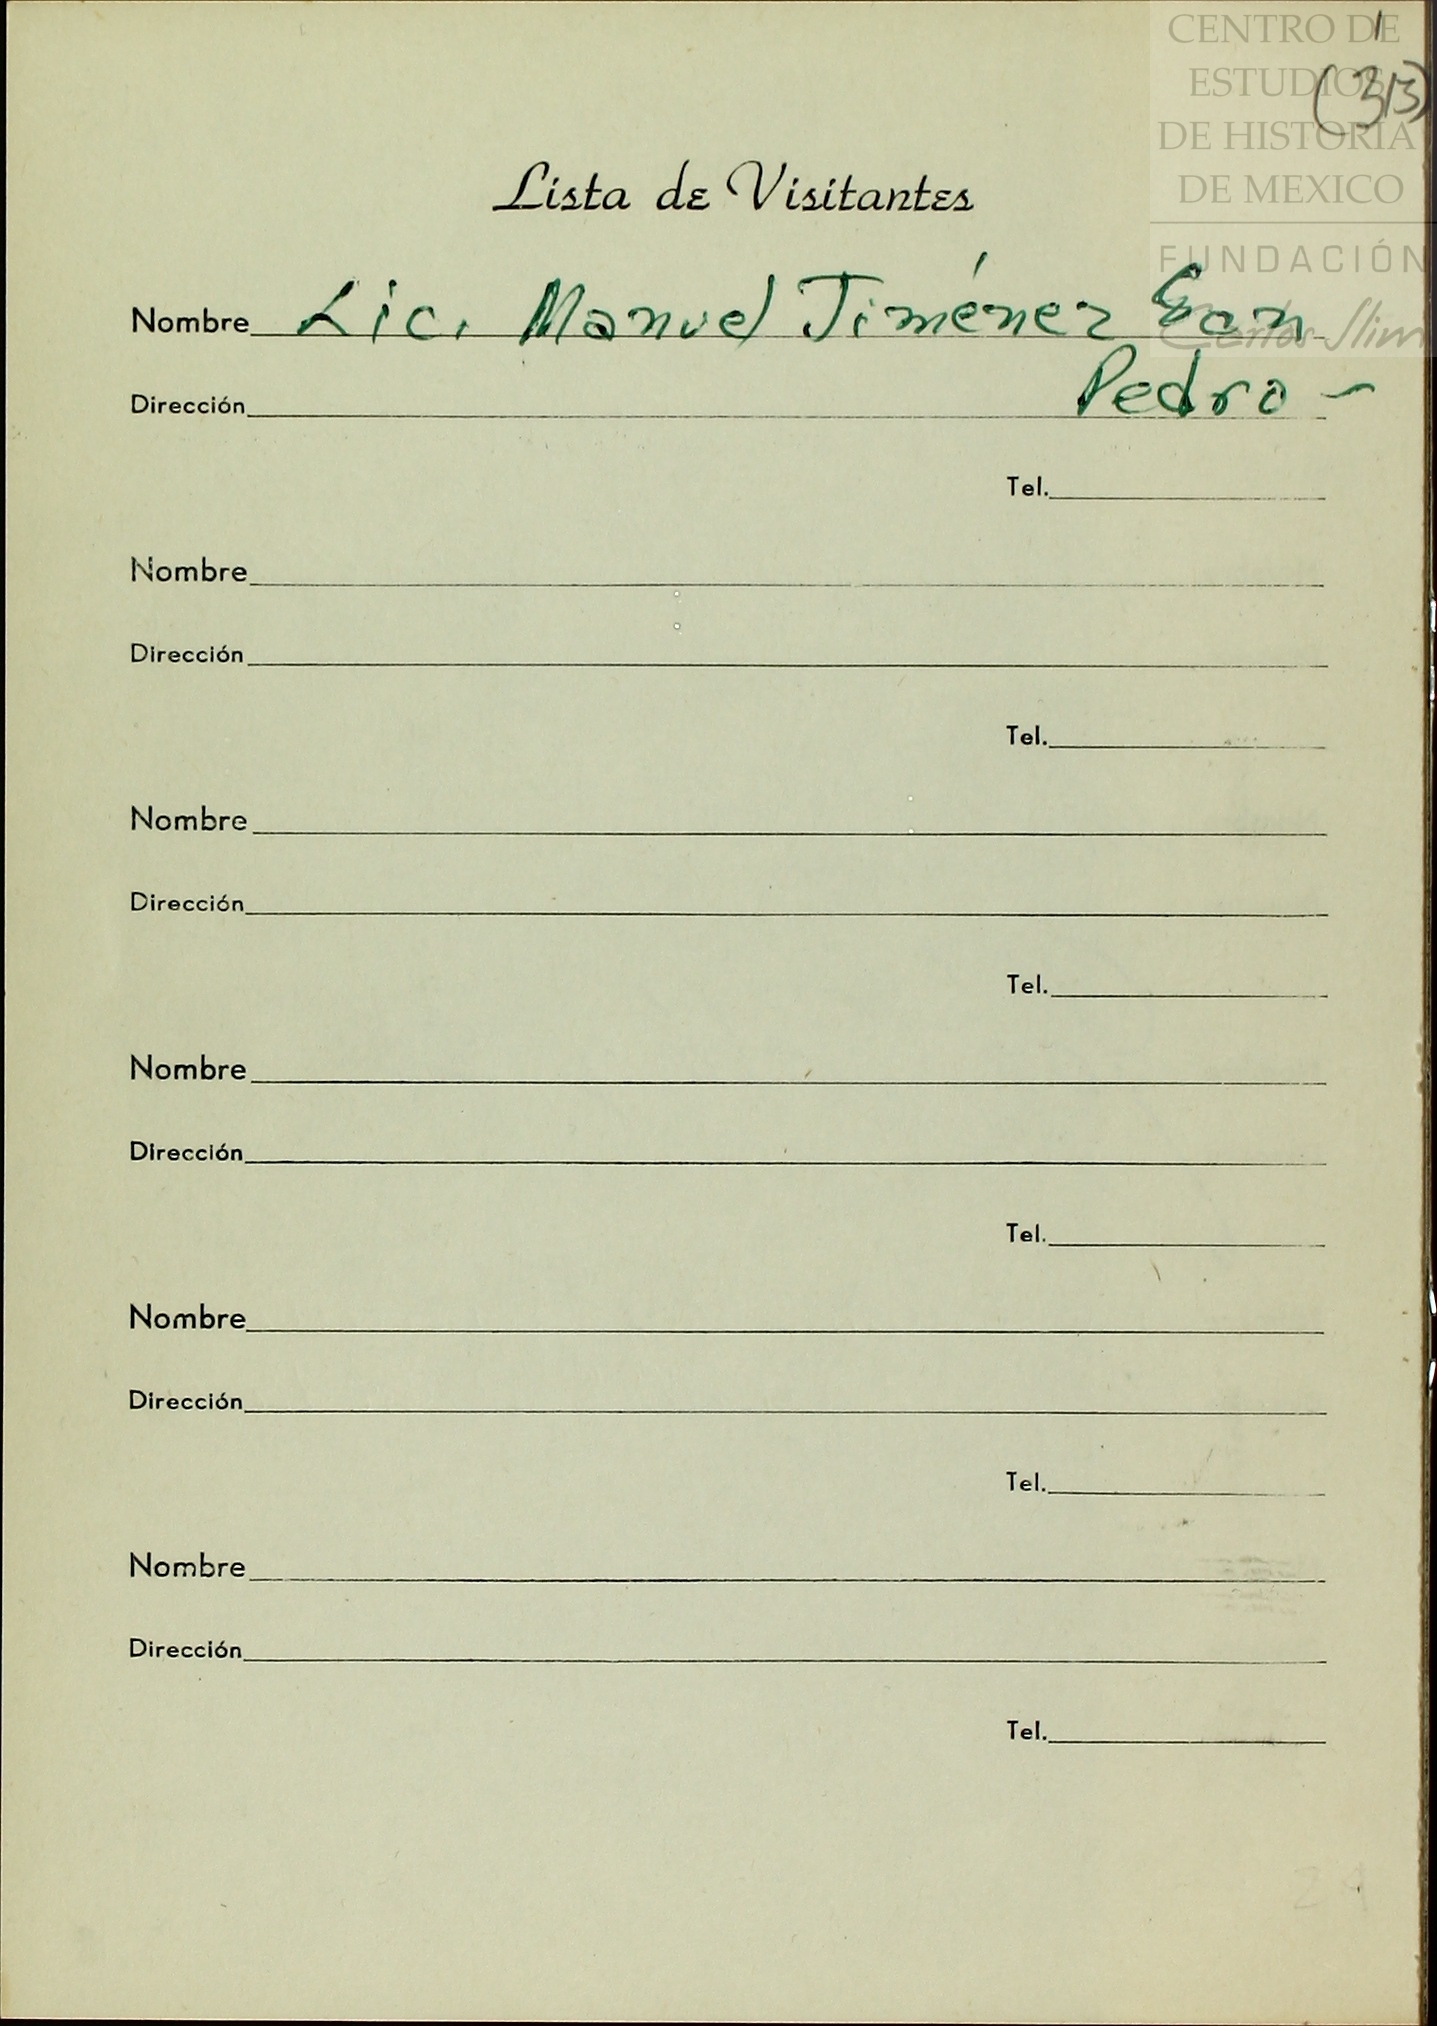 CENTRO DE
ESTUDIOS
DE HISTORIA
DE MEXICO
FUNDACIÓN
Carlos Slim
1
(313)
Lista de Visitantes
Nombre Lic. Manuel Jiménez San
Dirección Pedro -
Tel.
Nombre
Dirección
Tel.
Nombre
Dirección
Tel.
Nombre
Dirección
Tel.
Nombre
Dirección
Tel.
Nombre
Dirección
Tel.